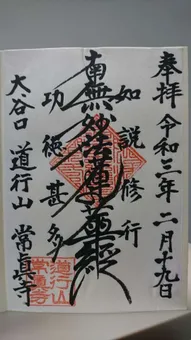 奉拝 令和三年二月十九日
如説修行
南無妙法蓮華經
功徳甚多
大谷口 道行山 常眞寺
道行山
常真寺